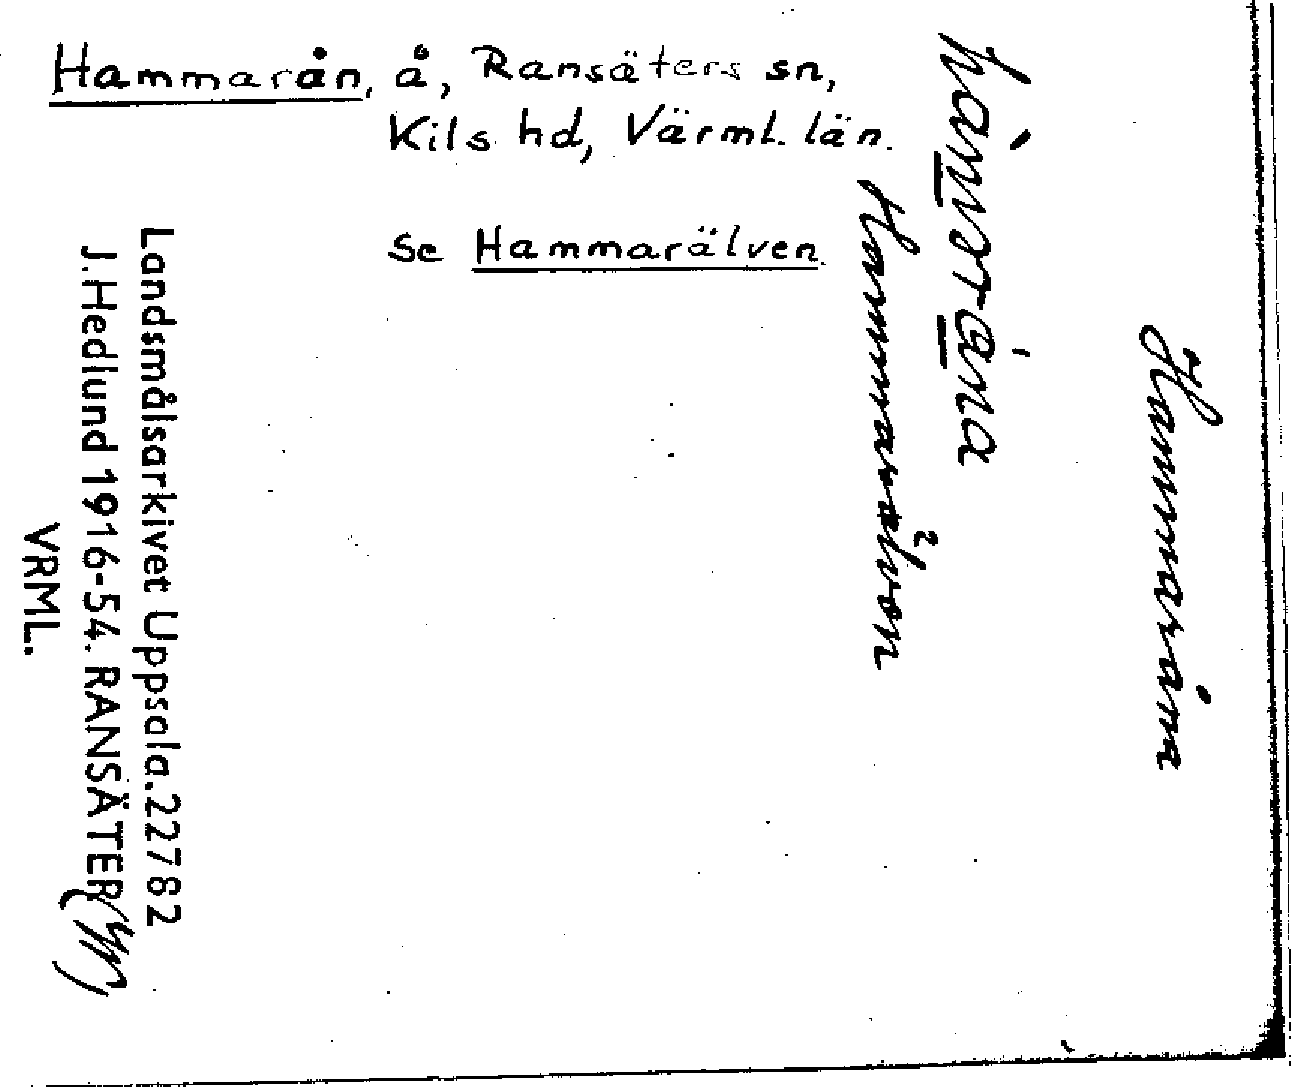 Hammarån, å, Ransäters sn,
Kils hd, Värml. län.
se Hammarälven
Hammaråna
Hammarälven
Landsmålsarkivet Uppsala. 22782
J. Hedlund 1916-54. RANSÄTER
VRML.